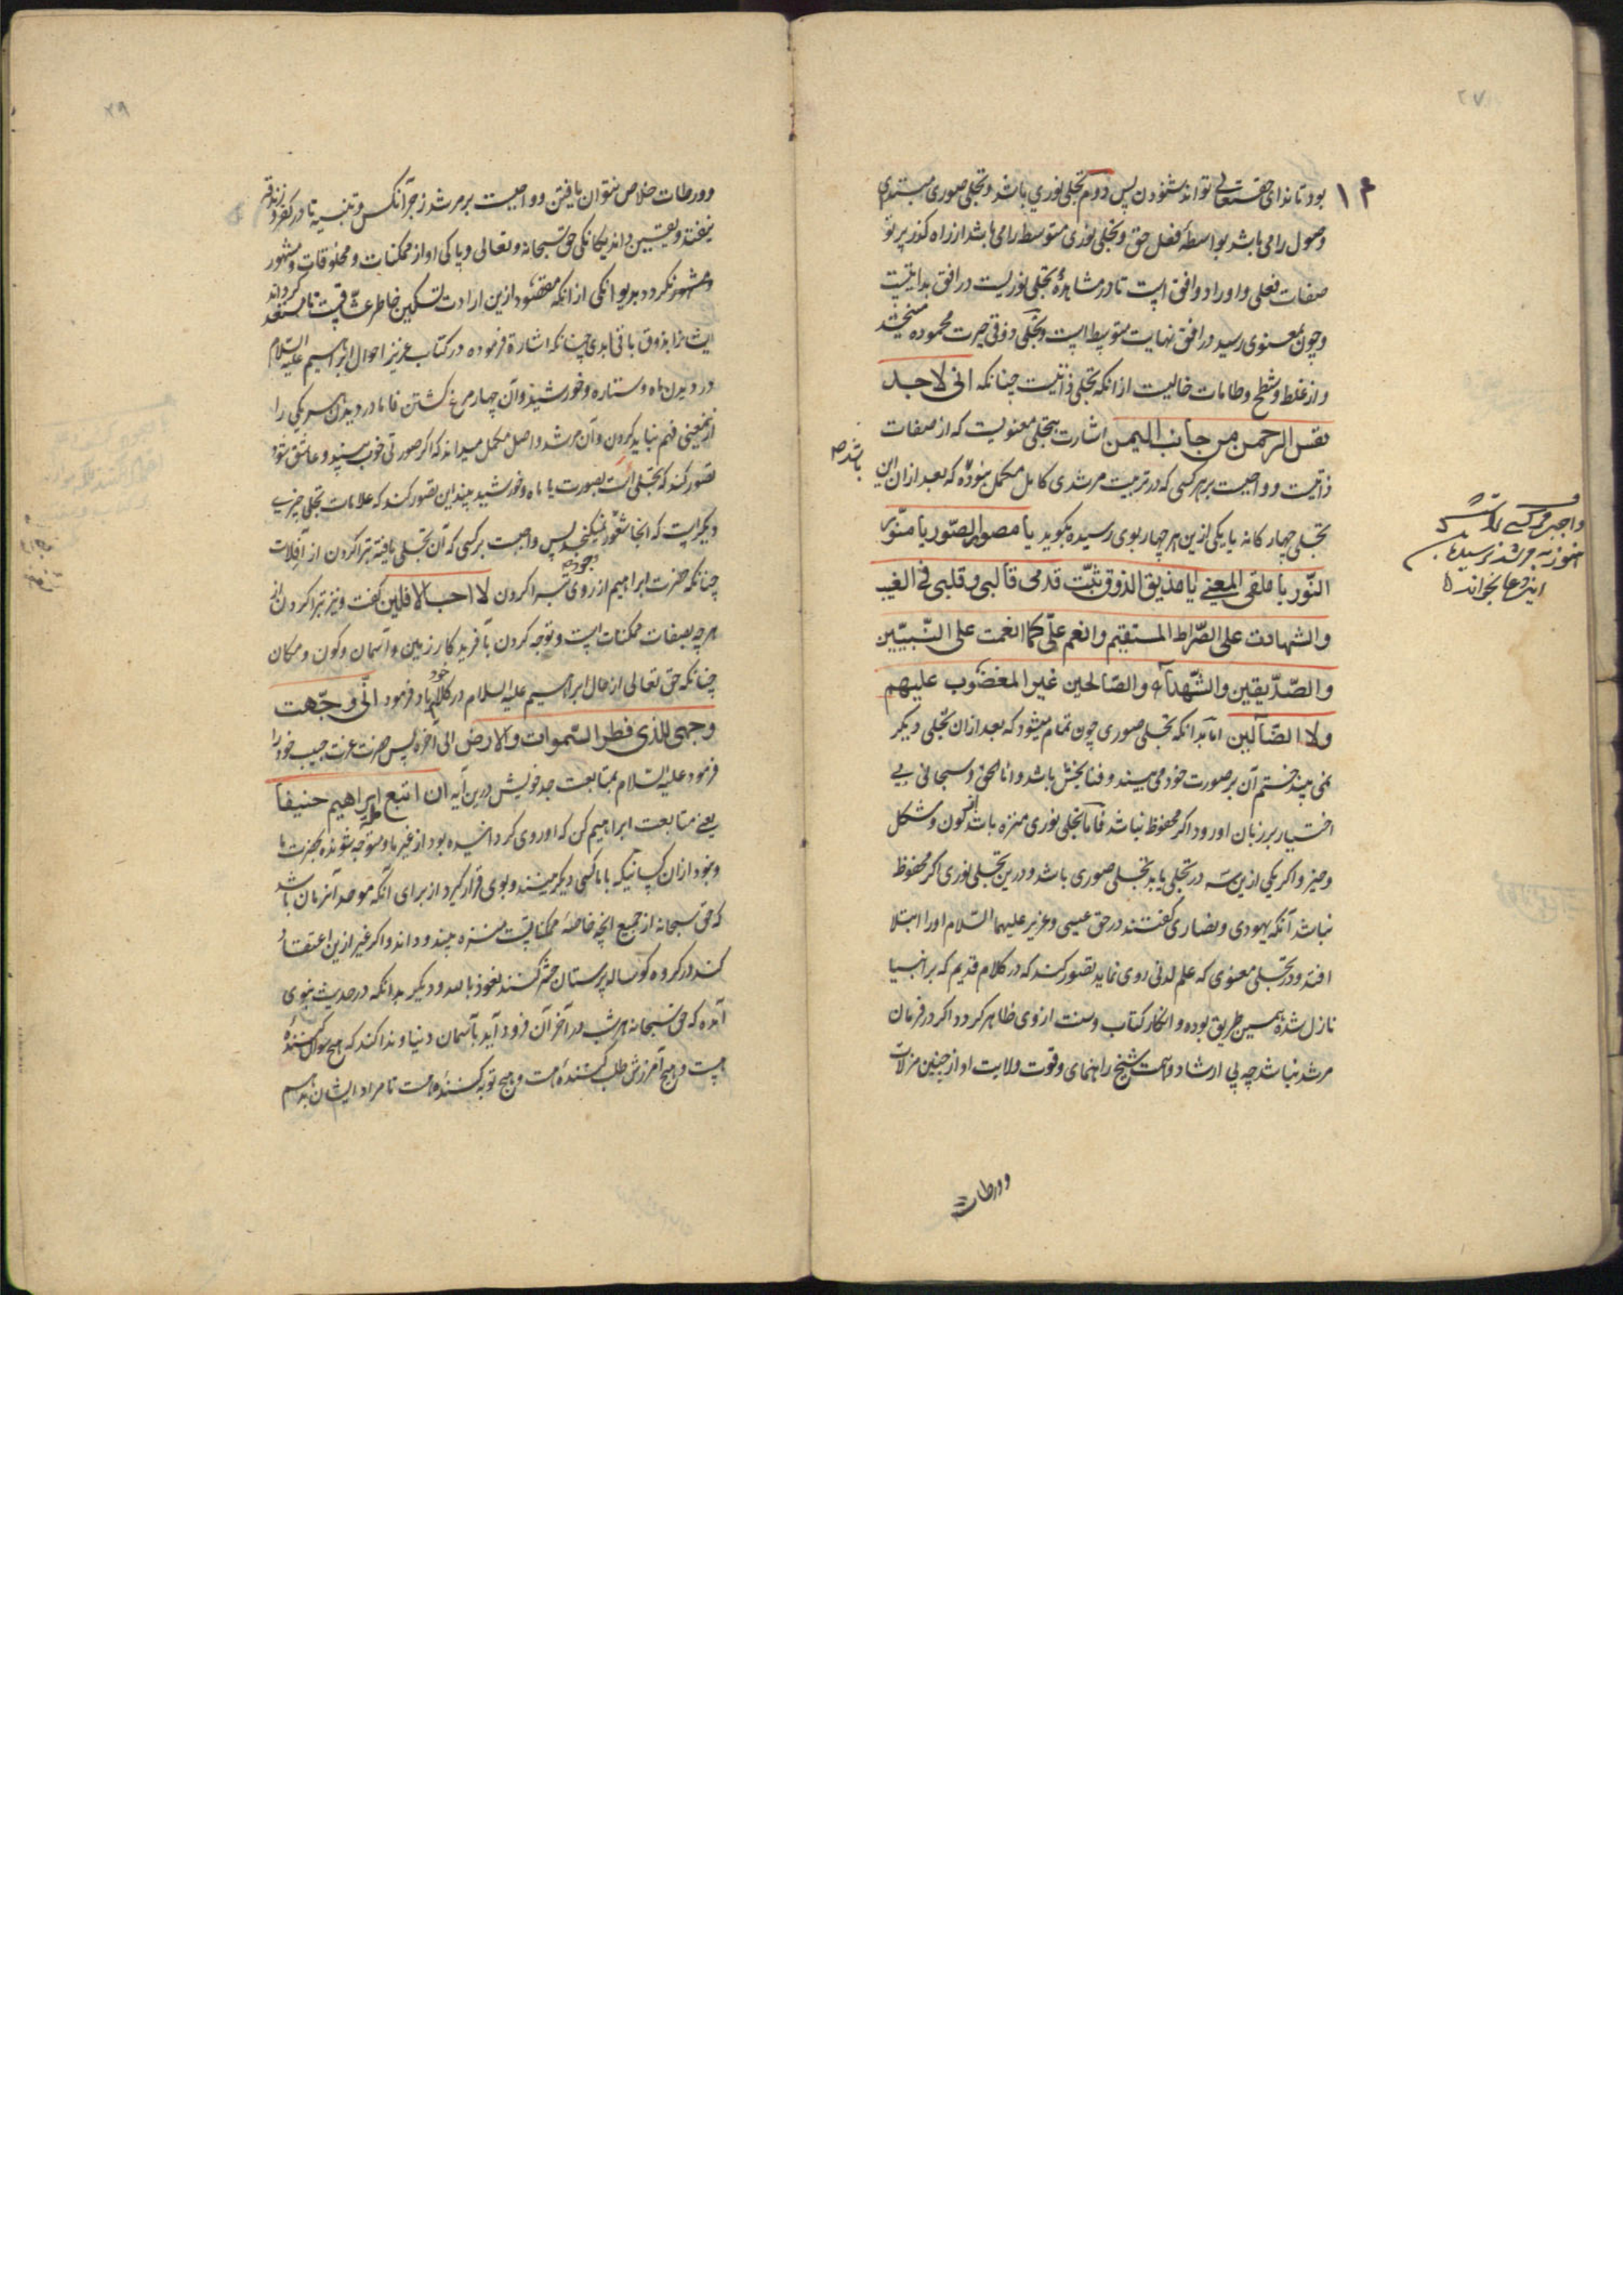 ۲۷
بود تا ندای حقتعالی تواند شنودن پس دوم تجلی نوری باشد و تجلی صوری مبتدی
وصول را می باشد بواسطه فضل حق و تجلی نوری متوسط را می باشد از راه گذر پرتو
صفات فعلی و او را دو افق است تا در مشاهدهٔ تجلی نوریست در افق بدایتست
و چون بمعنوی رسید در افق نهایت متوسط است و تجلی ذوقی حیرت محموده
و از غلط و شطح و طامات خالیست از انکه تجلی ذاتیست چنانکه انی لاجد
نفس الرحمن من جانب الیمن اشارت بتجلی معنویست که از صفات
ذاتیست و واجبست بر هر کسی که در تربیت مرشدی کامل مکمل نبوده که بعد از ان این
باشد
تجلی چهار کانه یا یکی ازین هر چهار بوی رسیده بگوید یا مصور الصور یا منور
النور یا ملقی المعنی یا مذیق الذوق ثبت قدمی قالبی و قلبی فی الغیب
والشهادت علی الصراط المستقیم وانعم علی کما انعمت علی النبیین
والصدیقین والشهدآء والصالحین غیر المغضوب علیهم
ولا الضالین اما بدانکه تجلی صوری چون تمام میشود که بعد از ان تجلی دیگر
نمی بیند ختم آن بر صورت خود می بیند و فنا بخش باشد و انا الحق و سبحانی بی
اختیار بر زبان او رود اگر محفوظ نباشد فاما تجلی نوری منزه باشد از کون و شکل
و حیز و اگر یکی ازین سه در تجلی یابد تجلی صوری باشد و درین تجلی نوری اگر محفوظ
نباشد آنکه یهودی و نصاری گفتند در حق عیسی و عزیر علیهما السلام او را ابتلا
افتد و در تجلی معنوی که علم لدنی روی نماید تصور کند که در کلام قدیم که بر انبیا
نازل شده همین طریق بوده و انکار کتاب و سنت از وی ظاهر گردد اگر در فرمان
مرشد نباشد چه بی ارشاد و همت شیخ راهنمای و قوت ولایت او از چنین مزلات
ورطات
هنوز به مرشد نرسیده
این دعا بخواند
۲۹
و ورطات خلاص نتوان یافتن و واجبست بر مرشد زجر آنکس و تنبیه تا در کفر و زندقه
نیفتد و بیقین داند یکانکی حق سبحانه و تعالی و پاکی او از ممکنات و مخلوقات و مشهور
و مشهور نکردد بدیوانکی از انکه مقصود ازین ارادت تسکین خاطر عشاقست تا مستعد کرداند
ایشانرا بذوق باقی ابدی چنانکه اشارة فرموده در کتاب عزیز احوال ابراهیم علیه السلام
در دیدن ماه و ستاره و خورشید و آن چهار مرغ کشتن فاما در دیدن هر یکی را
ازینمعنی فهم نباید کردن و آن مرشد واصل مکمل میداند که اگر صورتی خوب ببیند و عاشق شود
تصور کند که تجلی است بصورت یا ماه و خورشید بیند این تصور کند که علامات تجلی چیزی
دیگر است که اینجا شعور نمیکنجد پس واجبست بر کسی که آن تجلی یافته تبرا کردن از آفلات
چنانکه حضرت ابراهیم از روی تبرا کردن لا احب الافلین گفت و نیز تبرا کردن از
هر چه بصفات ممکنات است و توجه کردن بآفریدکار زمین و آسمان و کون و مکان
چنانکه حق تعالی از حال ابراهیم علیه السلام در کلام خود یاد فرمود انی وجهت
وجهی للذی فطر السموات والارض الی آخره پس حضرت عزت حبیب خود را
فرمود علیه السلام بمتابعت جد خویش درین آیه ان اتبع ابراهیم حنیفا
یعنی متابعت ابراهیم کن که او روی کردانیده بود از غیر ما و متوجه شونده بحضرت ما
و نبود از ان کسانیکه با ما کسی دیگر بینند و بوی قرار گیرد از برای آنکه موحد آنزمان باشد
که حق سبحانه از جمیع آنچه خاصهٔ ممکناتست منزه بیند و داند و اگر غیر ازین اعتقاد
کند در کروه کوساله پرستان حشر کنند نعوذ بالله و دیگر بدانکه در حدیث نبوی
آمده که حق سبحانه هر شب در آخر آن فرود آید بآسمان دنیا و ندا کند که هیچ سوال کنندهٔ
هست و هیچ آمرزش طلب کنندهٔ هست و هیچ توبه کنندهٔ هست تا مراد ایشان بدهم